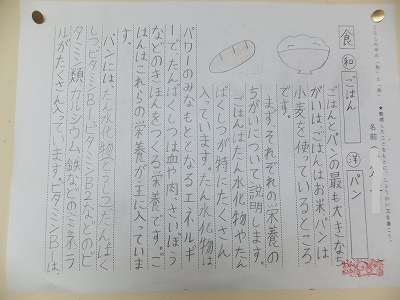 くらしの中の「和」と「洋」
★整理したことをもとに、しょうかい文を書こう。
名前(
食
和 ごはん
洋 パン
ごはんとパンの最も大きなち
がいは、ごはんはお米、パンは
小麦を使っているところ
です。
まずそれぞれの栄養の
ちがいについて説明します。
ごはんはたん水化物やたん
ぱくしつが特にたくさん
入っています。たん水化物は
パワーのみなもととなるエネルギ
ーで、たんぱくしつは血や肉、さいぼう
などのきほんをつくる栄養です。ご
はんはこれらの栄養が主に入っていま
す。
パンには、たん水化物(とうしつ)、たんぱく
しつ、ビタミンB1、ビタミンB2などのビ
タミン類、カルシウム、鉄などのミネラ
ルがたくさん入っています。ビタミンB1は、